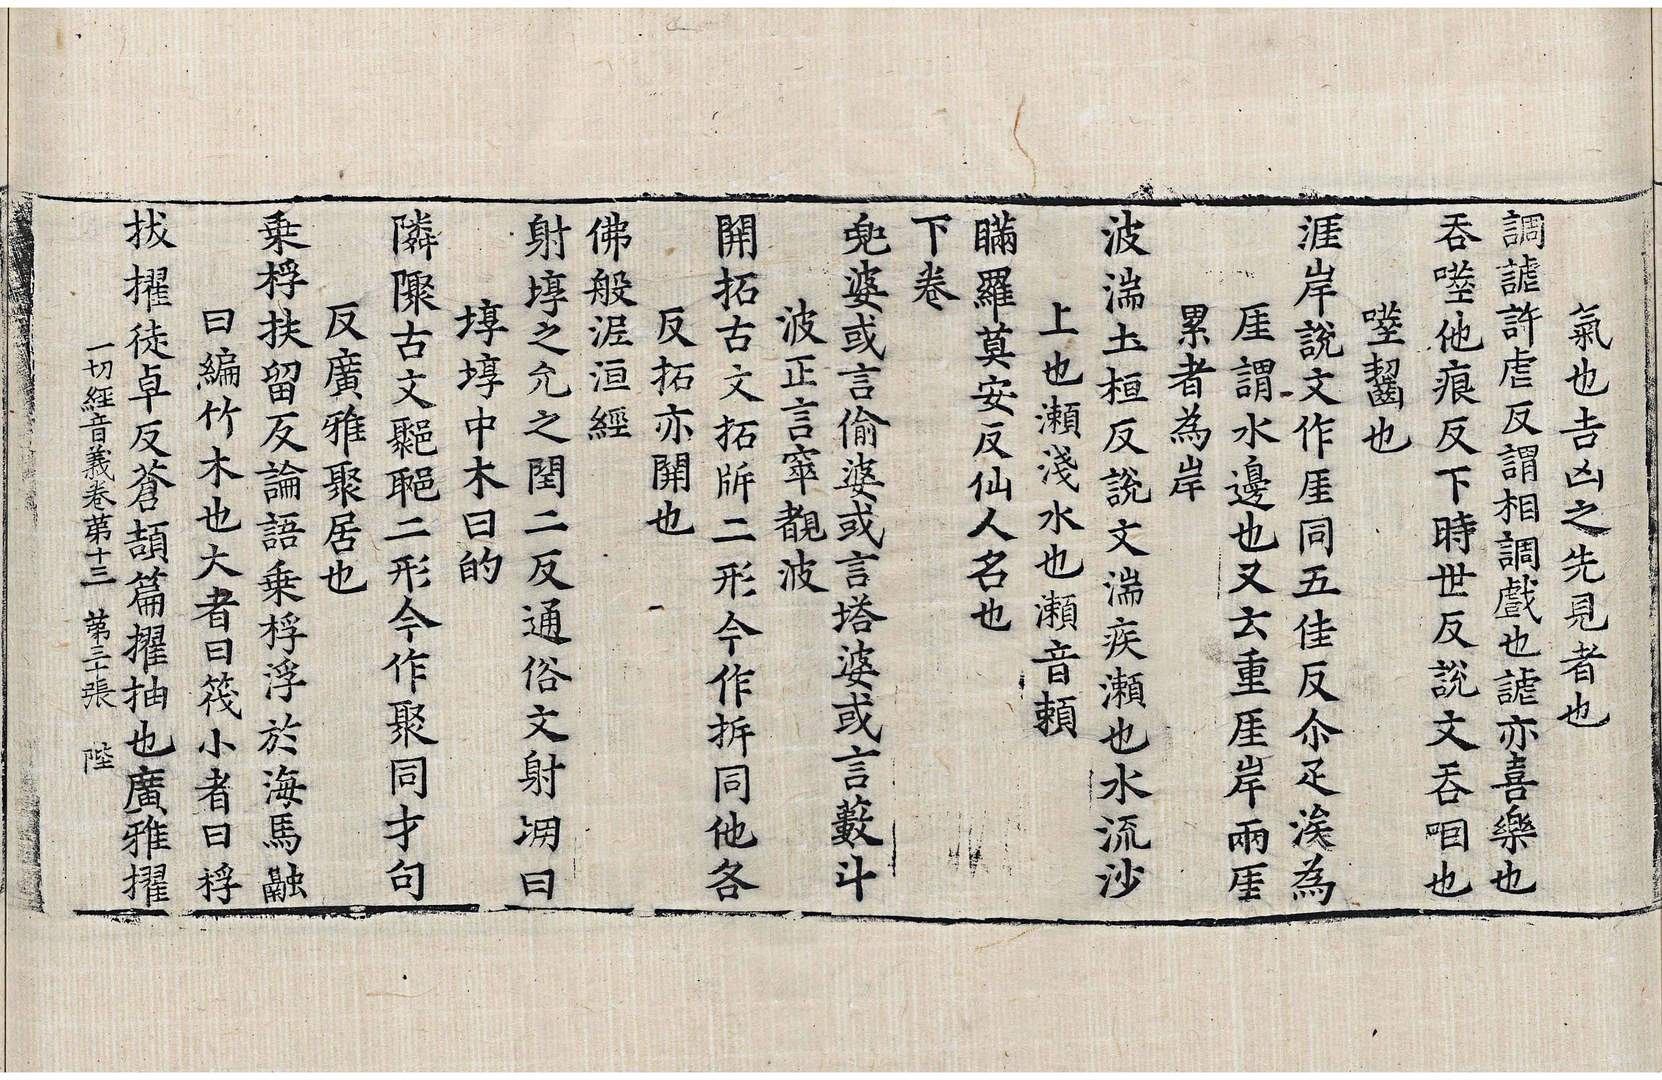 氣也吉凶之先見者也
調謔許虐反謂相調戲也謔亦喜樂也
吞噬他痕反下時世反說文吞咽也
噬齧也
涯岸說文作厓同五佳反尒疋涘為
厓謂水邊也又云重厓岸兩厓
累者為岸
波湍土桓反說文湍疾瀨也水流沙
上也瀬淺水也瀬音頼
瞞羅莫安反仙人名也
下卷
兜婆或言偷婆或言塔婆或言藪斗
波正言窣覩波
開拓古文拓㡿二形今作拆同他各
反拓亦開也
佛般泥洹經
射埻之允之閏二反通俗文射堋曰
埻埻中木曰的
隣聚古文𨞜𨛴二形今作聚同才句
反廣雅聚居也
乗桴扶留反論語乗桴浮於海馬融
曰編竹木也大者曰筏小者曰桴
拔擢徒卓反蒼頡篇擢抽也廣雅擢
一切經音義卷苐十三 苐三十張 陛